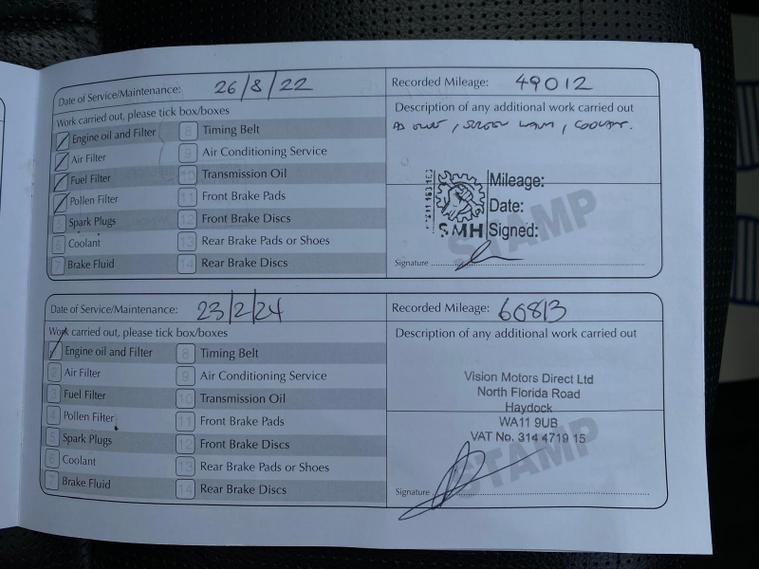 Date of Service/Maintenance: 26/8/22
Recorded Mileage: 49012
Work carried out, please tick box/boxes
Description of any additional work carried out
Engine oil and Filter
8 Timing Belt
Air Filter
9 Air Conditioning Service
Fuel Filter
10 Transmission Oil
Pollen Filter
11 Front Brake Pads
5 Spark Plugs
12 Front Brake Discs
6 Coolant
13 Rear Brake Pads or Shoes
7 Brake Fluid
14 Rear Brake Discs
, COOLANT.
Mileage:
Date:
SMH Signed:
STAMP
Signature
Date of Service/Maintenance: 23/2/24
Recorded Mileage: 60813
Work carried out, please tick box/boxes
Description of any additional work carried out
Engine oil and Filter
8 Timing Belt
2 Air Filter
9 Air Conditioning Service
3 Fuel Filter
10 Transmission Oil
4 Pollen Filter
11 Front Brake Pads
5 Spark Plugs
12 Front Brake Discs
6 Coolant
13 Rear Brake Pads or Shoes
7 Brake Fluid
14 Rear Brake Discs
Vision Motors Direct Ltd
North Florida Road
Haydock
WA11 9UB
VAT No. 314 4719 15
STAMP
Signature